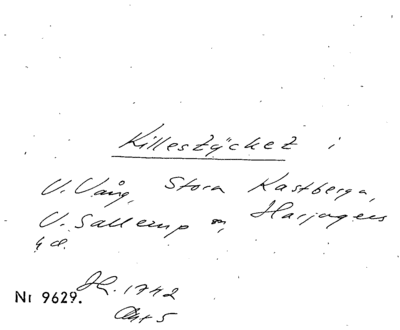 Killestycket i
V. Vång, Stora Kastberga,
V. Sallerup o, Harjagers
Nr 9629.